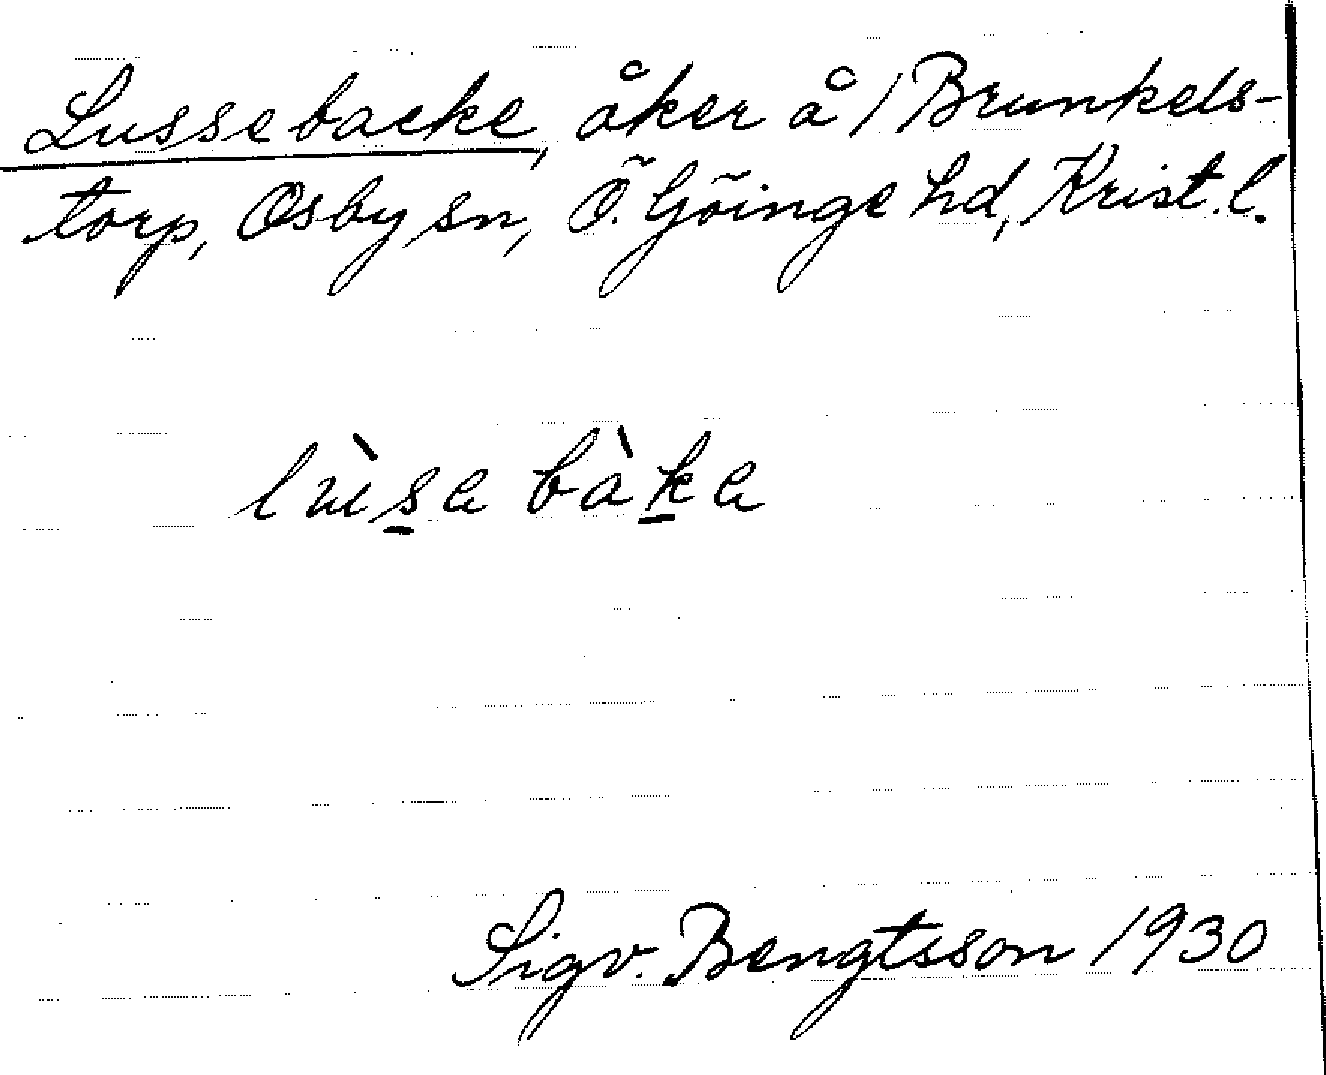 Lussebacke, åker å 1 Brunkels-
torp, Osby sn, Ö. Göinge hd, Krist. l.
Sigv. Bengtsson 1930